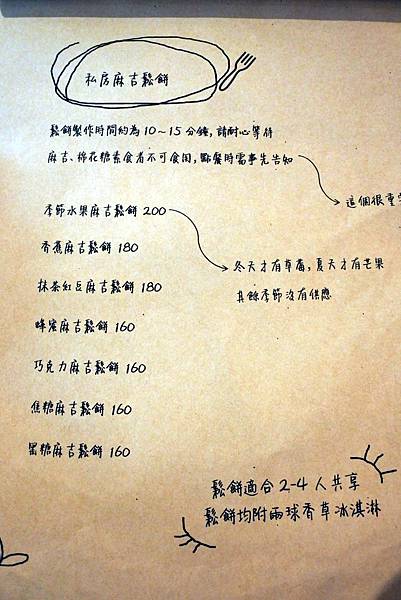 私房麻吉鬆餅
鬆餅製作時間約為10~15分鐘,請耐心等待
麻吉、棉花糖素食者不可食用,點餐時需事先告知
這個很重
季節水果麻吉鬆餅 200
香蕉麻吉鬆餅 180
冬天才有草莓,夏天才有芒果
其餘季節沒有供應
抹茶紅豆麻吉鬆餅 180
蜂蜜麻吉鬆餅 160
巧克力麻吉鬆餅 160
焦糖麻吉鬆餅 160
黑糖麻吉鬆餅 160
鬆餅適合2-4人共享
鬆餅均附兩球香草冰淇淋